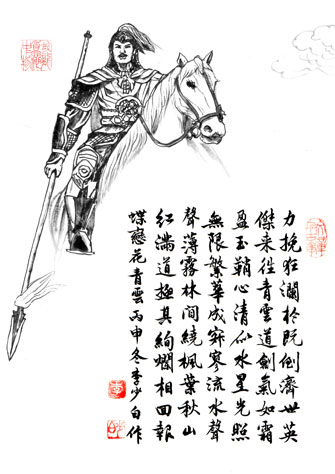 力挽狂瀾於既倒濟世英
傑来往青雲道劍氣如霜
盈玉鞘心清似水星光照
無限繁華成寂寥流水聲
聲薄霧林間繞楓葉秋山
紅滿道極其絢爛相回報
蝶戀花青雲丙申冬李少白作